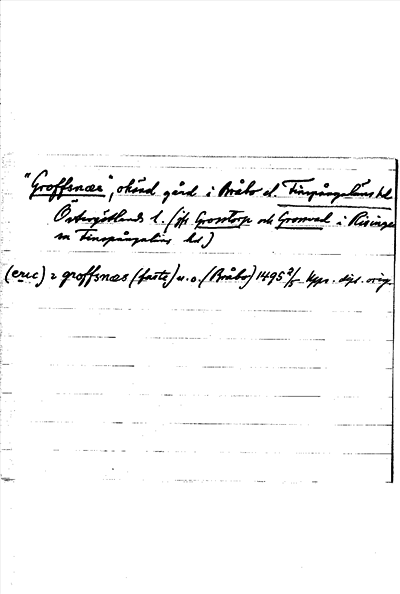 "Groffsnæs", okänd gård i Bråbo el. Finspångaläns hd
Östergötlands l. (jfr Grosstorp och Grosvad i Risinge
sn Finspångaläns hd.)
(eric) i groffsnæs (faste) u.o. (Bråbo) 1495 2/5 Upps. dipl. orig.